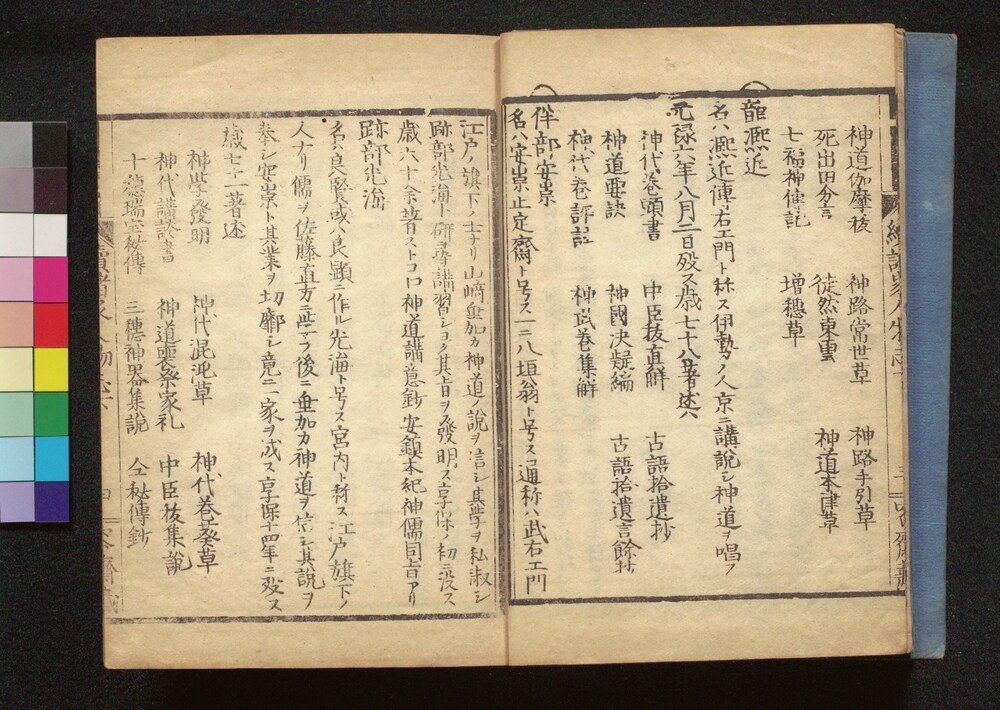 神道伽麼秡 神路常世草 神路手引草
死出田分言 徒然東雲 神道本津草
七福神傳記 増穗草
龍凞近
名ハ凞近傳右エ門ト称ス伊勢ノ人京ニ講説シ神道ヲ唱フ
元禄六年八月二日殁ス歳七十八著述ハ
神代卷頭書 中臣秡直解 古語拾遺抄
神道要訣 神國決疑編 古語拾遺言餘抄
神代卷評註 神武卷集解
伴部安崇
名ハ安崇止定齋ト号ス一ニ八垣翁ト号ス通称ハ武右エ門
江戸ノ旗下ノ士ナリ山﨑垂加カ神道ノ說ヲ信シ其学ヲ私淑シ
跡部光海ト研尋講習シヨク其旨ヲ発明ス享保ノ初ニ没ス
歳六十余著ストコロ神道講意鈔安鎮本紀神儒同旨アリ
跡部光海
名ハ良賢或ハ良顕ニ作ル光海ト号ス宮内ト称ス江戸旗下ノ
人ナリ儒ヲ佐藤直方ニ学フ後ニ垂加カ神道ヲ信シ其説ヲ
奉シ安崇ト其業ヲ切劘シ竟ニ一家ヲ成ス享保十四年ニ殁ス
歳七十一著述
神学發明 神代混沌草 神代卷葵草
神代講談書 神道喪祭家礼 中臣秡集説
十種瑞宝秘傳 三種神器集説 仝秘傳鈔